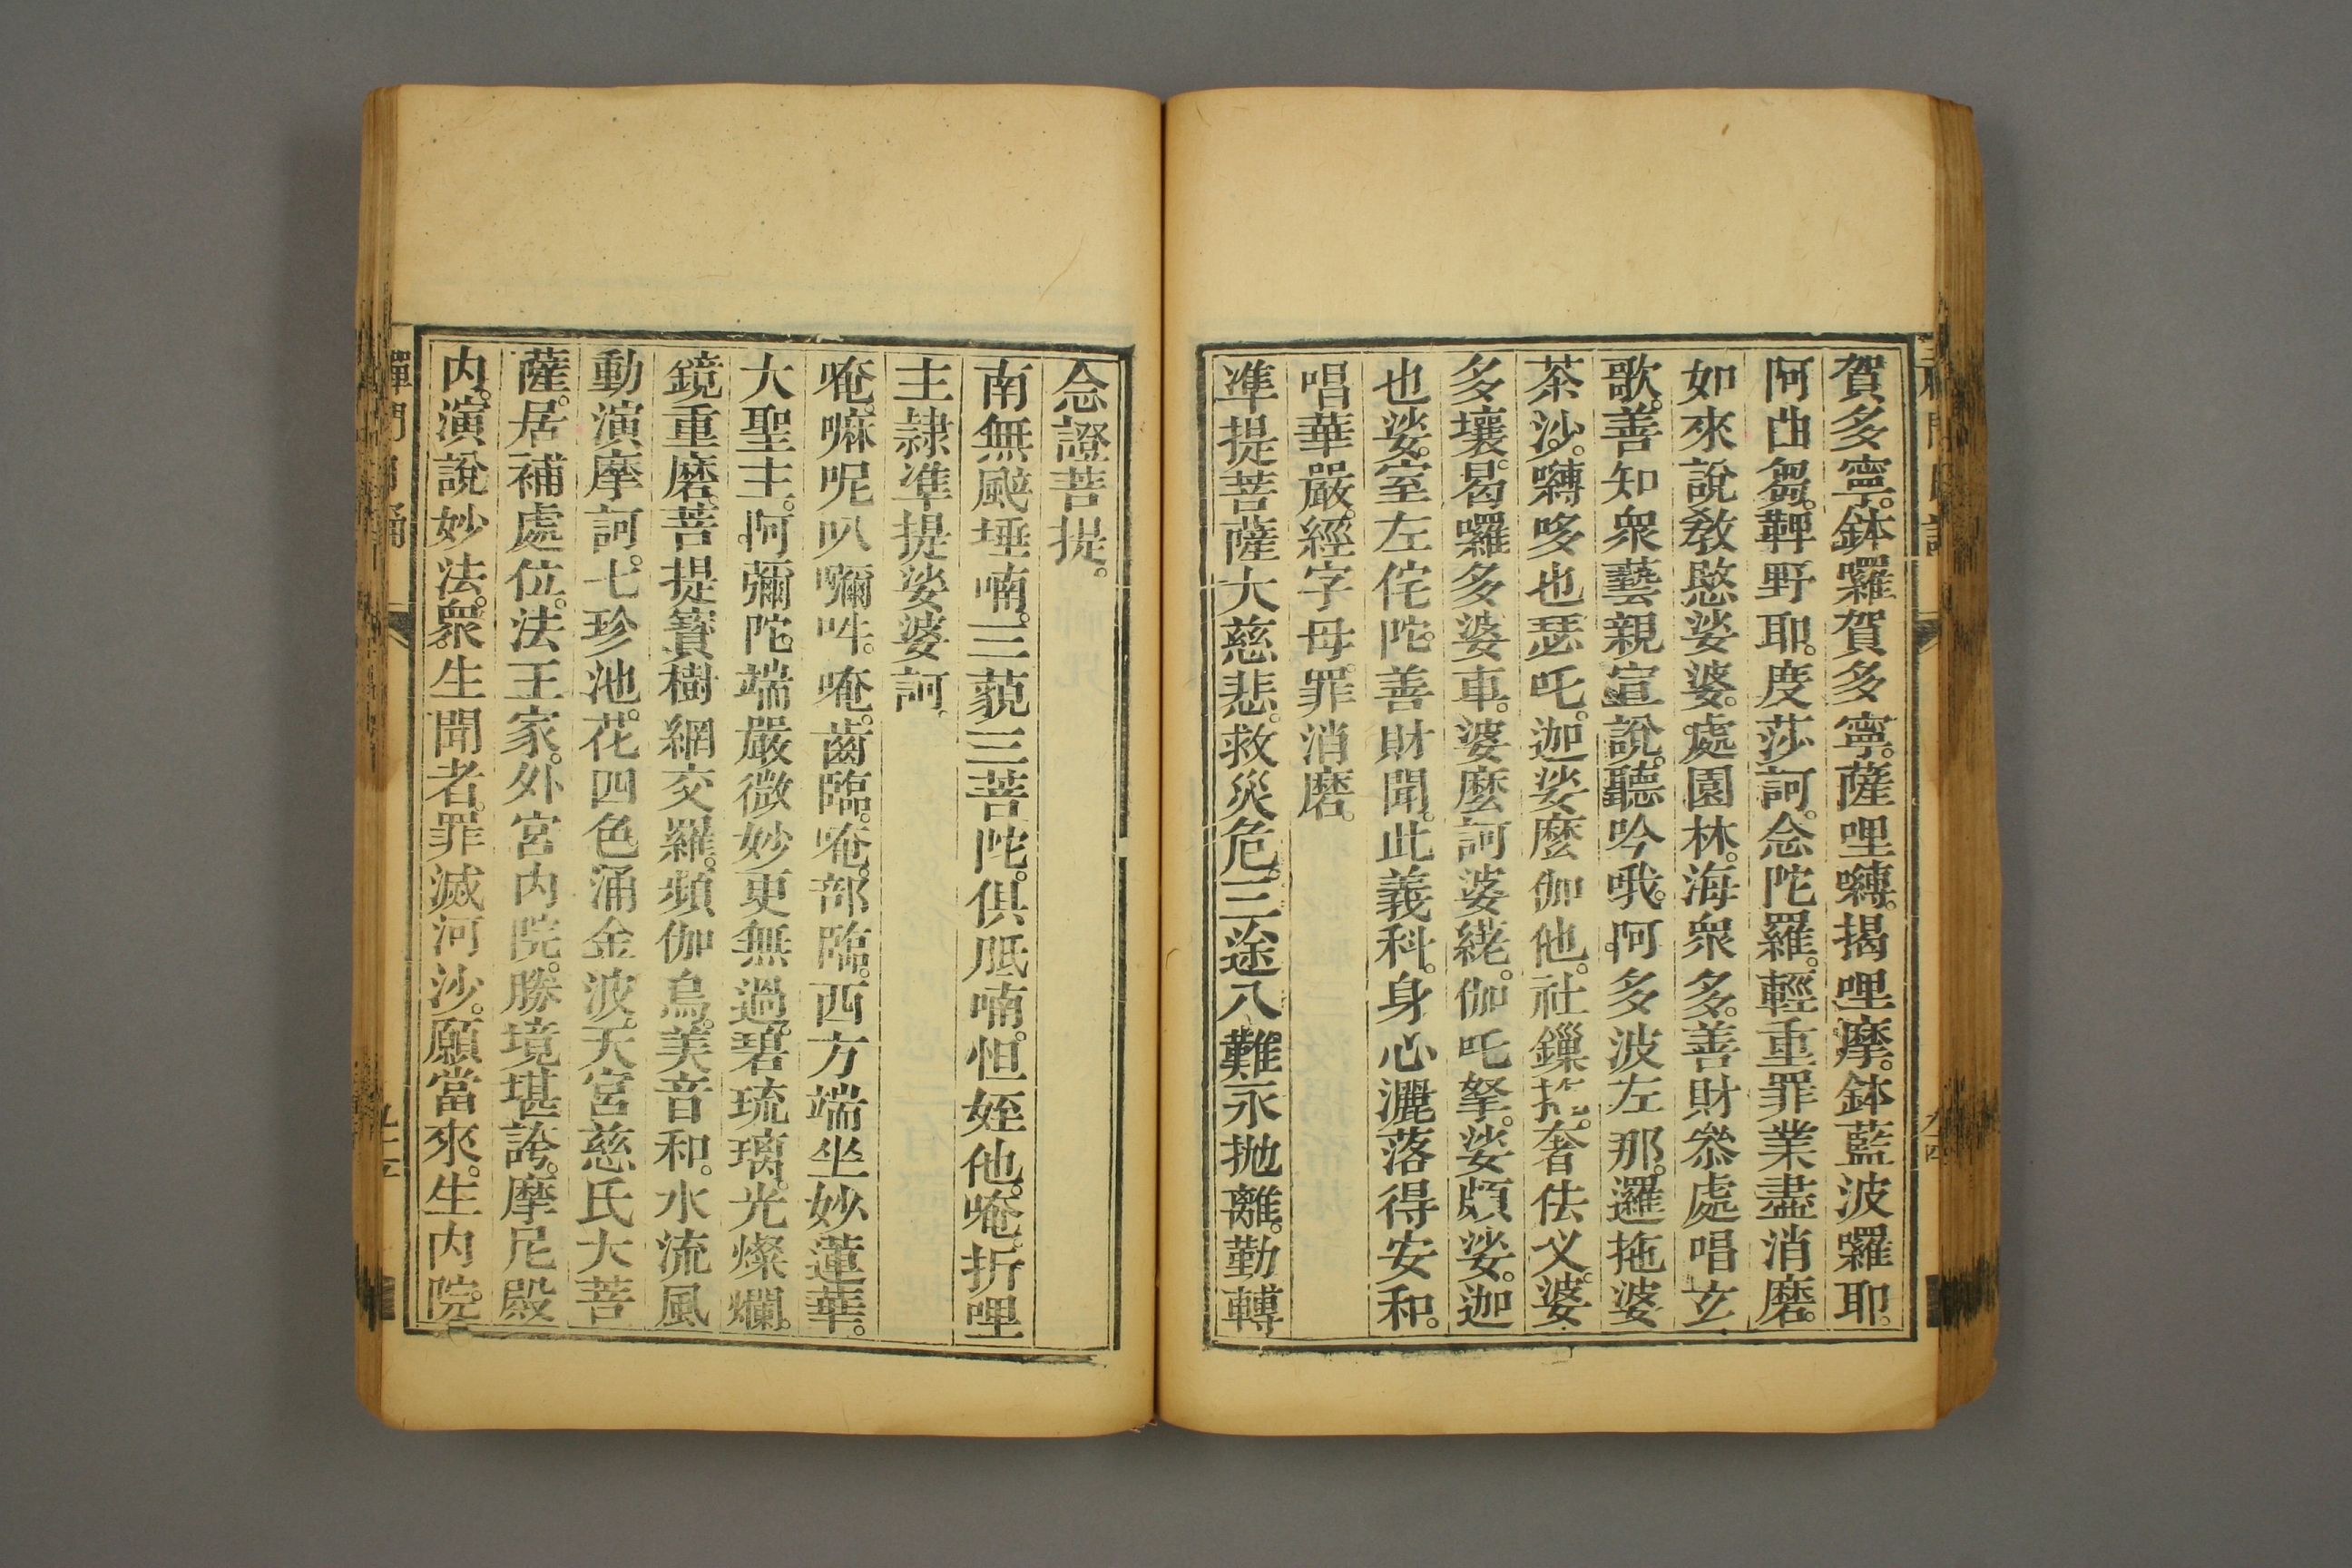 賀多寧。鉢囉賀多寧。薩哩嚩。揭哩摩。鉢藍波囉耶。
阿曲芻。鞞野耶。度莎訶。念陀羅。輕重罪業盡消磨。
如來說教愍娑婆。處園林。海衆多。善財叅處唱玄
歌。善知衆藝親宣說。聽吟哦。阿多波左那。邏拖婆
茶。沙。嚩哆也瑟吒。迦娑。麼伽他。社鏁拖。奢佉叉。婆
多壤。曷囉多婆車。婆麼訶婆縒。伽吒拏。娑頗娑。迦
也娑。室左侘陀。善財聞。此義科。身心灑落得安和。
唱華嚴。經字母。罪消磨。
準提菩薩大慈悲。救災危。三途八難永抛離。勤轉
念證菩提。
南無颰埵喃。三藐三菩陀。俱胝喃。怛姪他。唵。折哩
主隸準提娑婆訶。
唵。嘛呢叭嚩吽。唵。齒臨。唵。部臨。西方端坐妙蓮華。
大聖主。阿彌陀。端嚴微妙更無過。碧琉璃。光燦爛。
鏡重磨。菩提寳樹網交羅。頻伽鳥。美音和。水流風
動演摩訶。七珍池。花四色涌金波。天宮慈氏大菩
薩。居補處位。法王家。外宮内院。勝境堪誇。摩尼殿
内。演說妙法。衆生聞者。罪滅河沙。願當來。生内院。